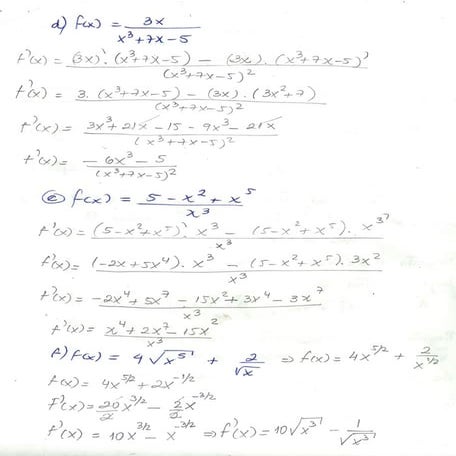 d) f(x) = 3x / x³+7x-5
f'(x) = (3x)'. (x³+7x-5) - (3x). (x³+7x-5)' / (x³+7x-5)²
f'(x) = 3. (x³+7x-5) - (3x). (3x²+7) / (x³+7x-5)²
f'(x) = 3x³+21x-15-9x³-21x / (x³+7x-5)²
f'(x) = -6x³-5 / (x³+7x-5)²
e) f(x) = 5-x²+x⁵ / x³
f'(x) = (5-x²+x⁵)'. x³ - (5-x²+x⁵). x³' / x³
f'(x) = (-2x+5x⁴). x³ - (5-x²+x⁵). 3x² / x³
f'(x) = -2x⁴+5x⁷-15x²+3x⁴-3x⁷ / x³
f'(x) = x⁴+2x⁷-15x² / x³
f) f(x) = 4√x⁵ + 2/√x ⇒ f(x) = 4x^5/2 + 2/x^1/2
f(x) = 4x^5/2 + 2x^-1/2
f'(x) = 20/2 x^3/2 - 2/2 x^-3/2
f'(x) = 10x^3/2 - x^-3/2 ⇒ f'(x) = 10√x³ - 1/√x³